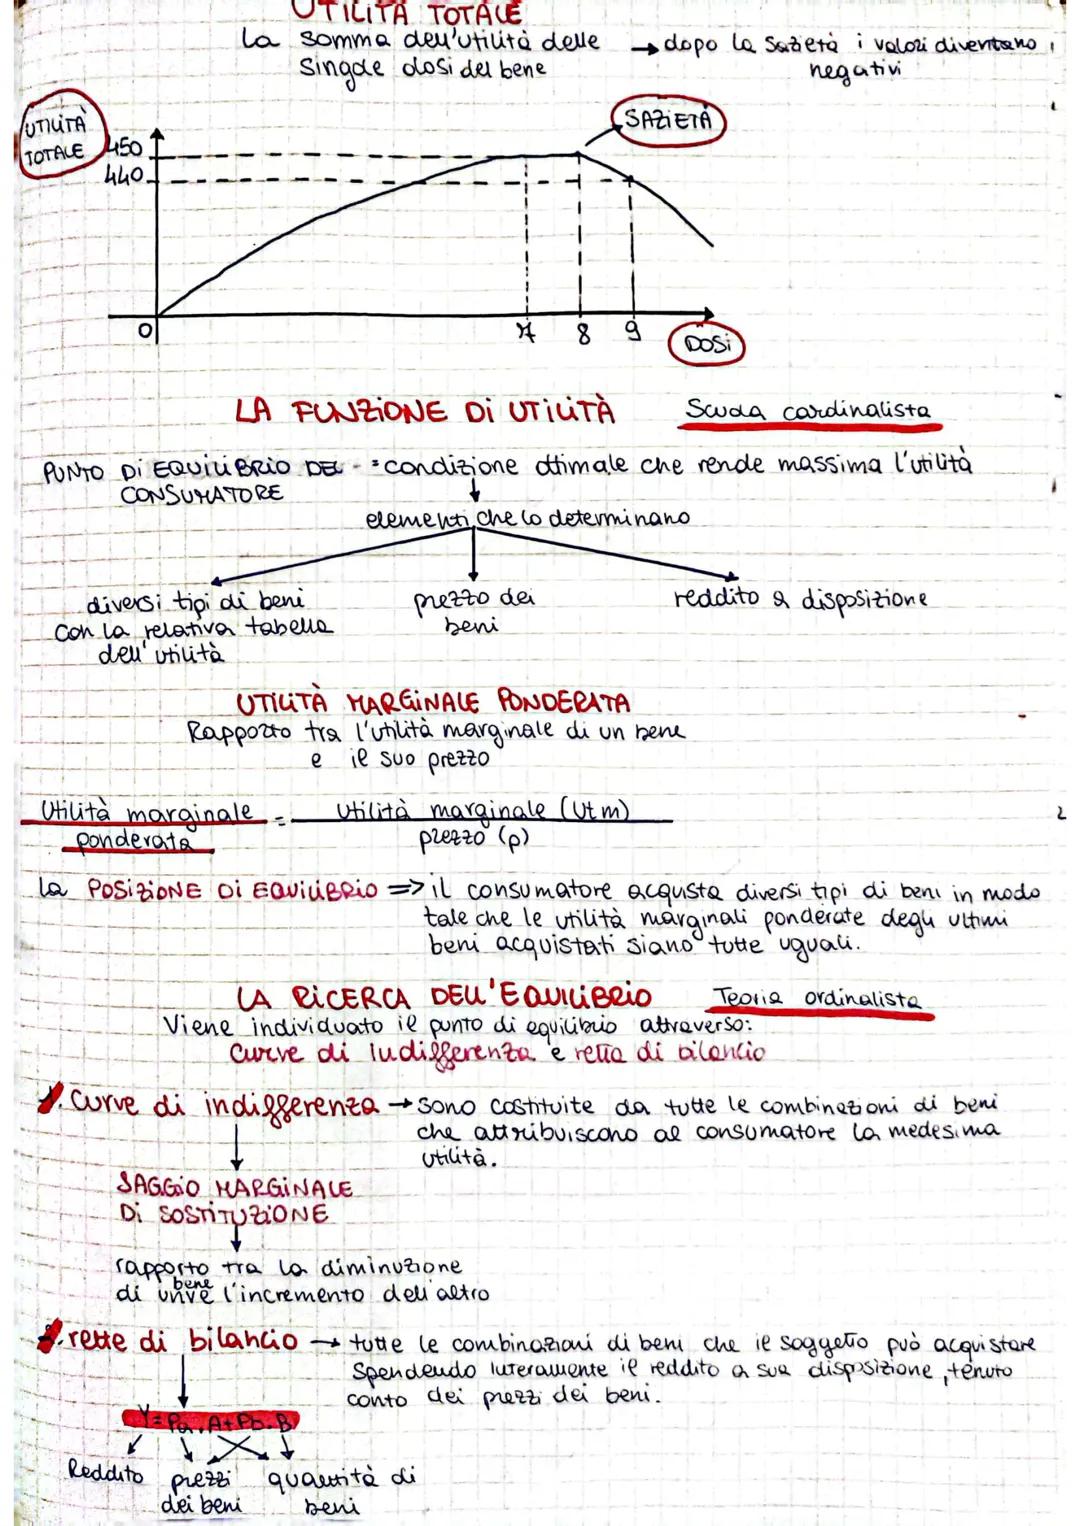 UTILITÀ TOTALE
La somma dell'utilità delle → dopo la sazietà i valori diventano
singole dosi del bene negativi
UTILITÀ
TOTALE
SAZIETÀ
450
440
0 7 8 9
DOSI
LA FUNZIONE DI UTILITÀ Scuola cardinalista
PUNTO DI EQUILIBRIO DEL = condizione ottimale che rende massima l'utilità
CONSUMATORE
elementi che lo determinano
diversi tipi di beni prezzo dei reddito a disposizione
con la relativa tabella beni
dell'utilità
UTILITÀ MARGINALE PONDERATA
Rapporto tra l'utilità marginale di un bene
e il suo prezzo
Utilità marginale = Utilità marginale (Utm)
ponderata prezzo (p)
La POSIZIONE DI EQUILIBRIO => il consumatore acquista diversi tipi di beni in modo
tale che le utilità marginali ponderate degli ultimi
beni acquistati siano tutte uguali.
LA RICERCA DELL'EQUILIBRIO Teoria ordinalista
Viene individuato il punto di equilibrio attraverso:
curve di indifferenza e retta di bilancio
1. Curve di indifferenza → sono costituite da tutte le combinazioni di beni
che attribuiscono al consumatore la medesima
utilità.
SAGGIO MARGINALE
DI SOSTITUZIONE
rapporto tra la diminuzione
bene
di un e l'incremento dell'altro
2. rette di bilancio → tutte le combinazioni di beni che il soggetto può acquistare
spendendo interamente il reddito a sua disposizione, tenuto
conto dei prezzi dei beni.
Y = Pa . A + Pb . B
Reddito prezzi quantità di
dei beni beni
2